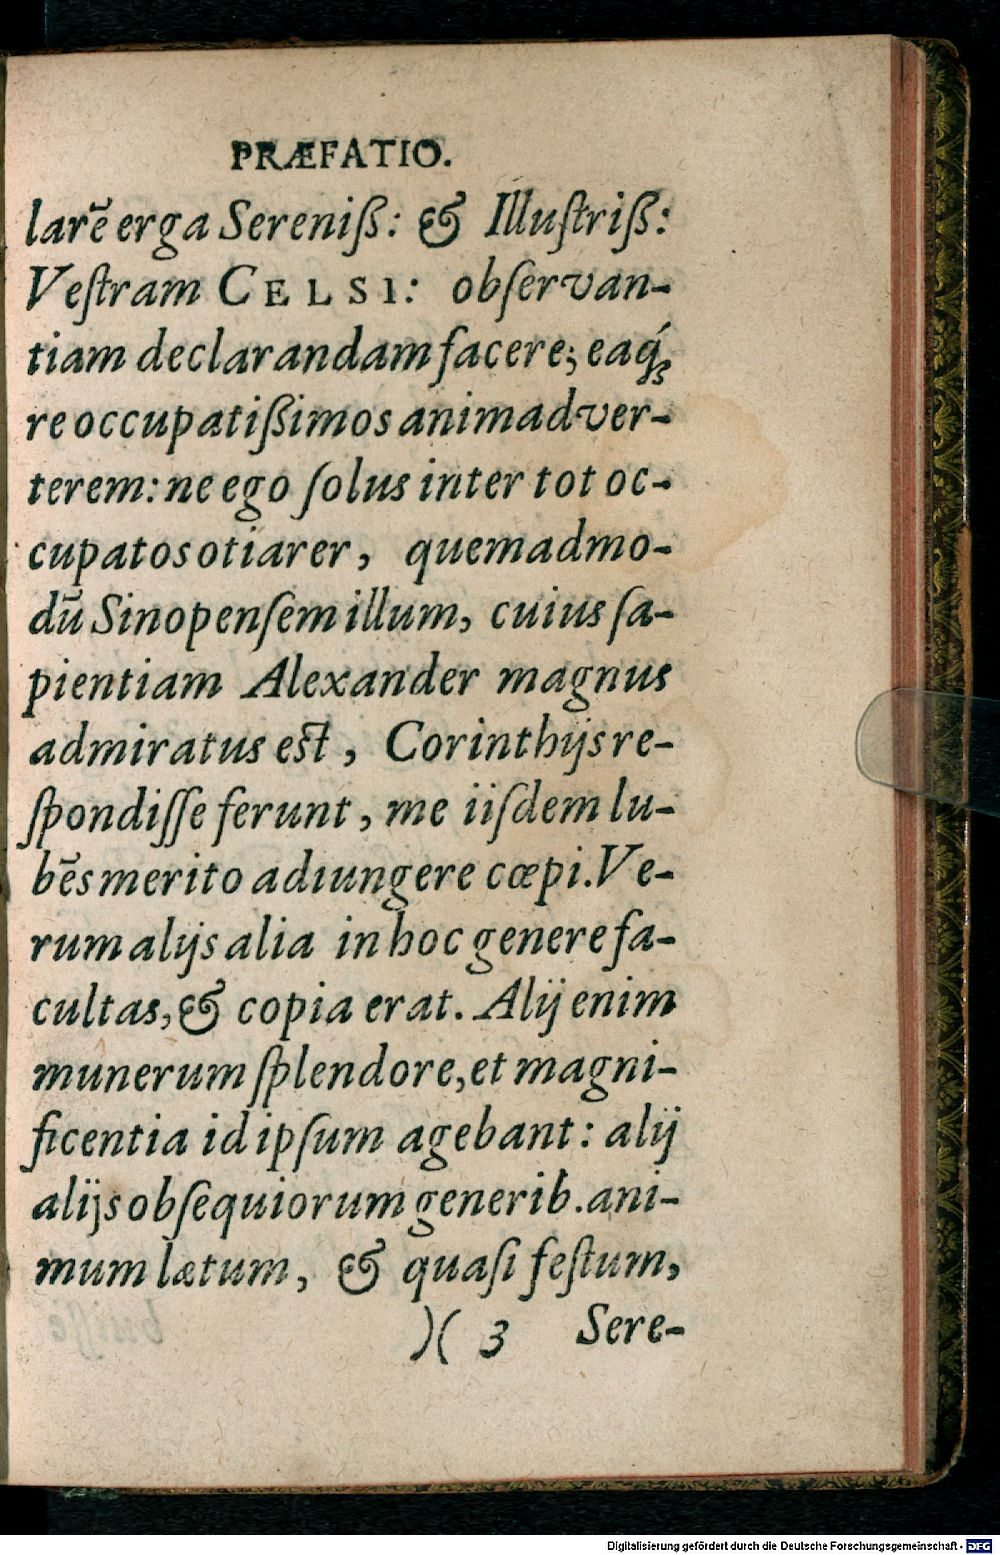 PRÆFATIO.
larē erga Sereniß: & Illuſtriß:
Veſtram CELSI: obſervan-
tiam declarandam facere; eaq́ꝫ
re occupatißimos animadver-
terem: ne ego ſolus inter tot oc-
cupatos otiarer, quemadmo-
dū Sinopenſem illum, cuius ſa-
pientiam Alexander magnus
admiratus eſt, Corinthijs re-
ſpondiſſe ferunt, me iiſdem lu-
bēs merito adiungere cœpi. Ve-
rum alijs alia in hoc genere fa-
cultas, & copia erat. Alij enim
munerum ſplendore, et magni-
ficentia id ipſum agebant: alij
alijs obſequiorum generib. ani-
mum lætum, & quaſi feſtum,
)( 3 Sere-
Digitalisierung gefördert durch die Deutsche Forschungsgemeinschaft - DFG